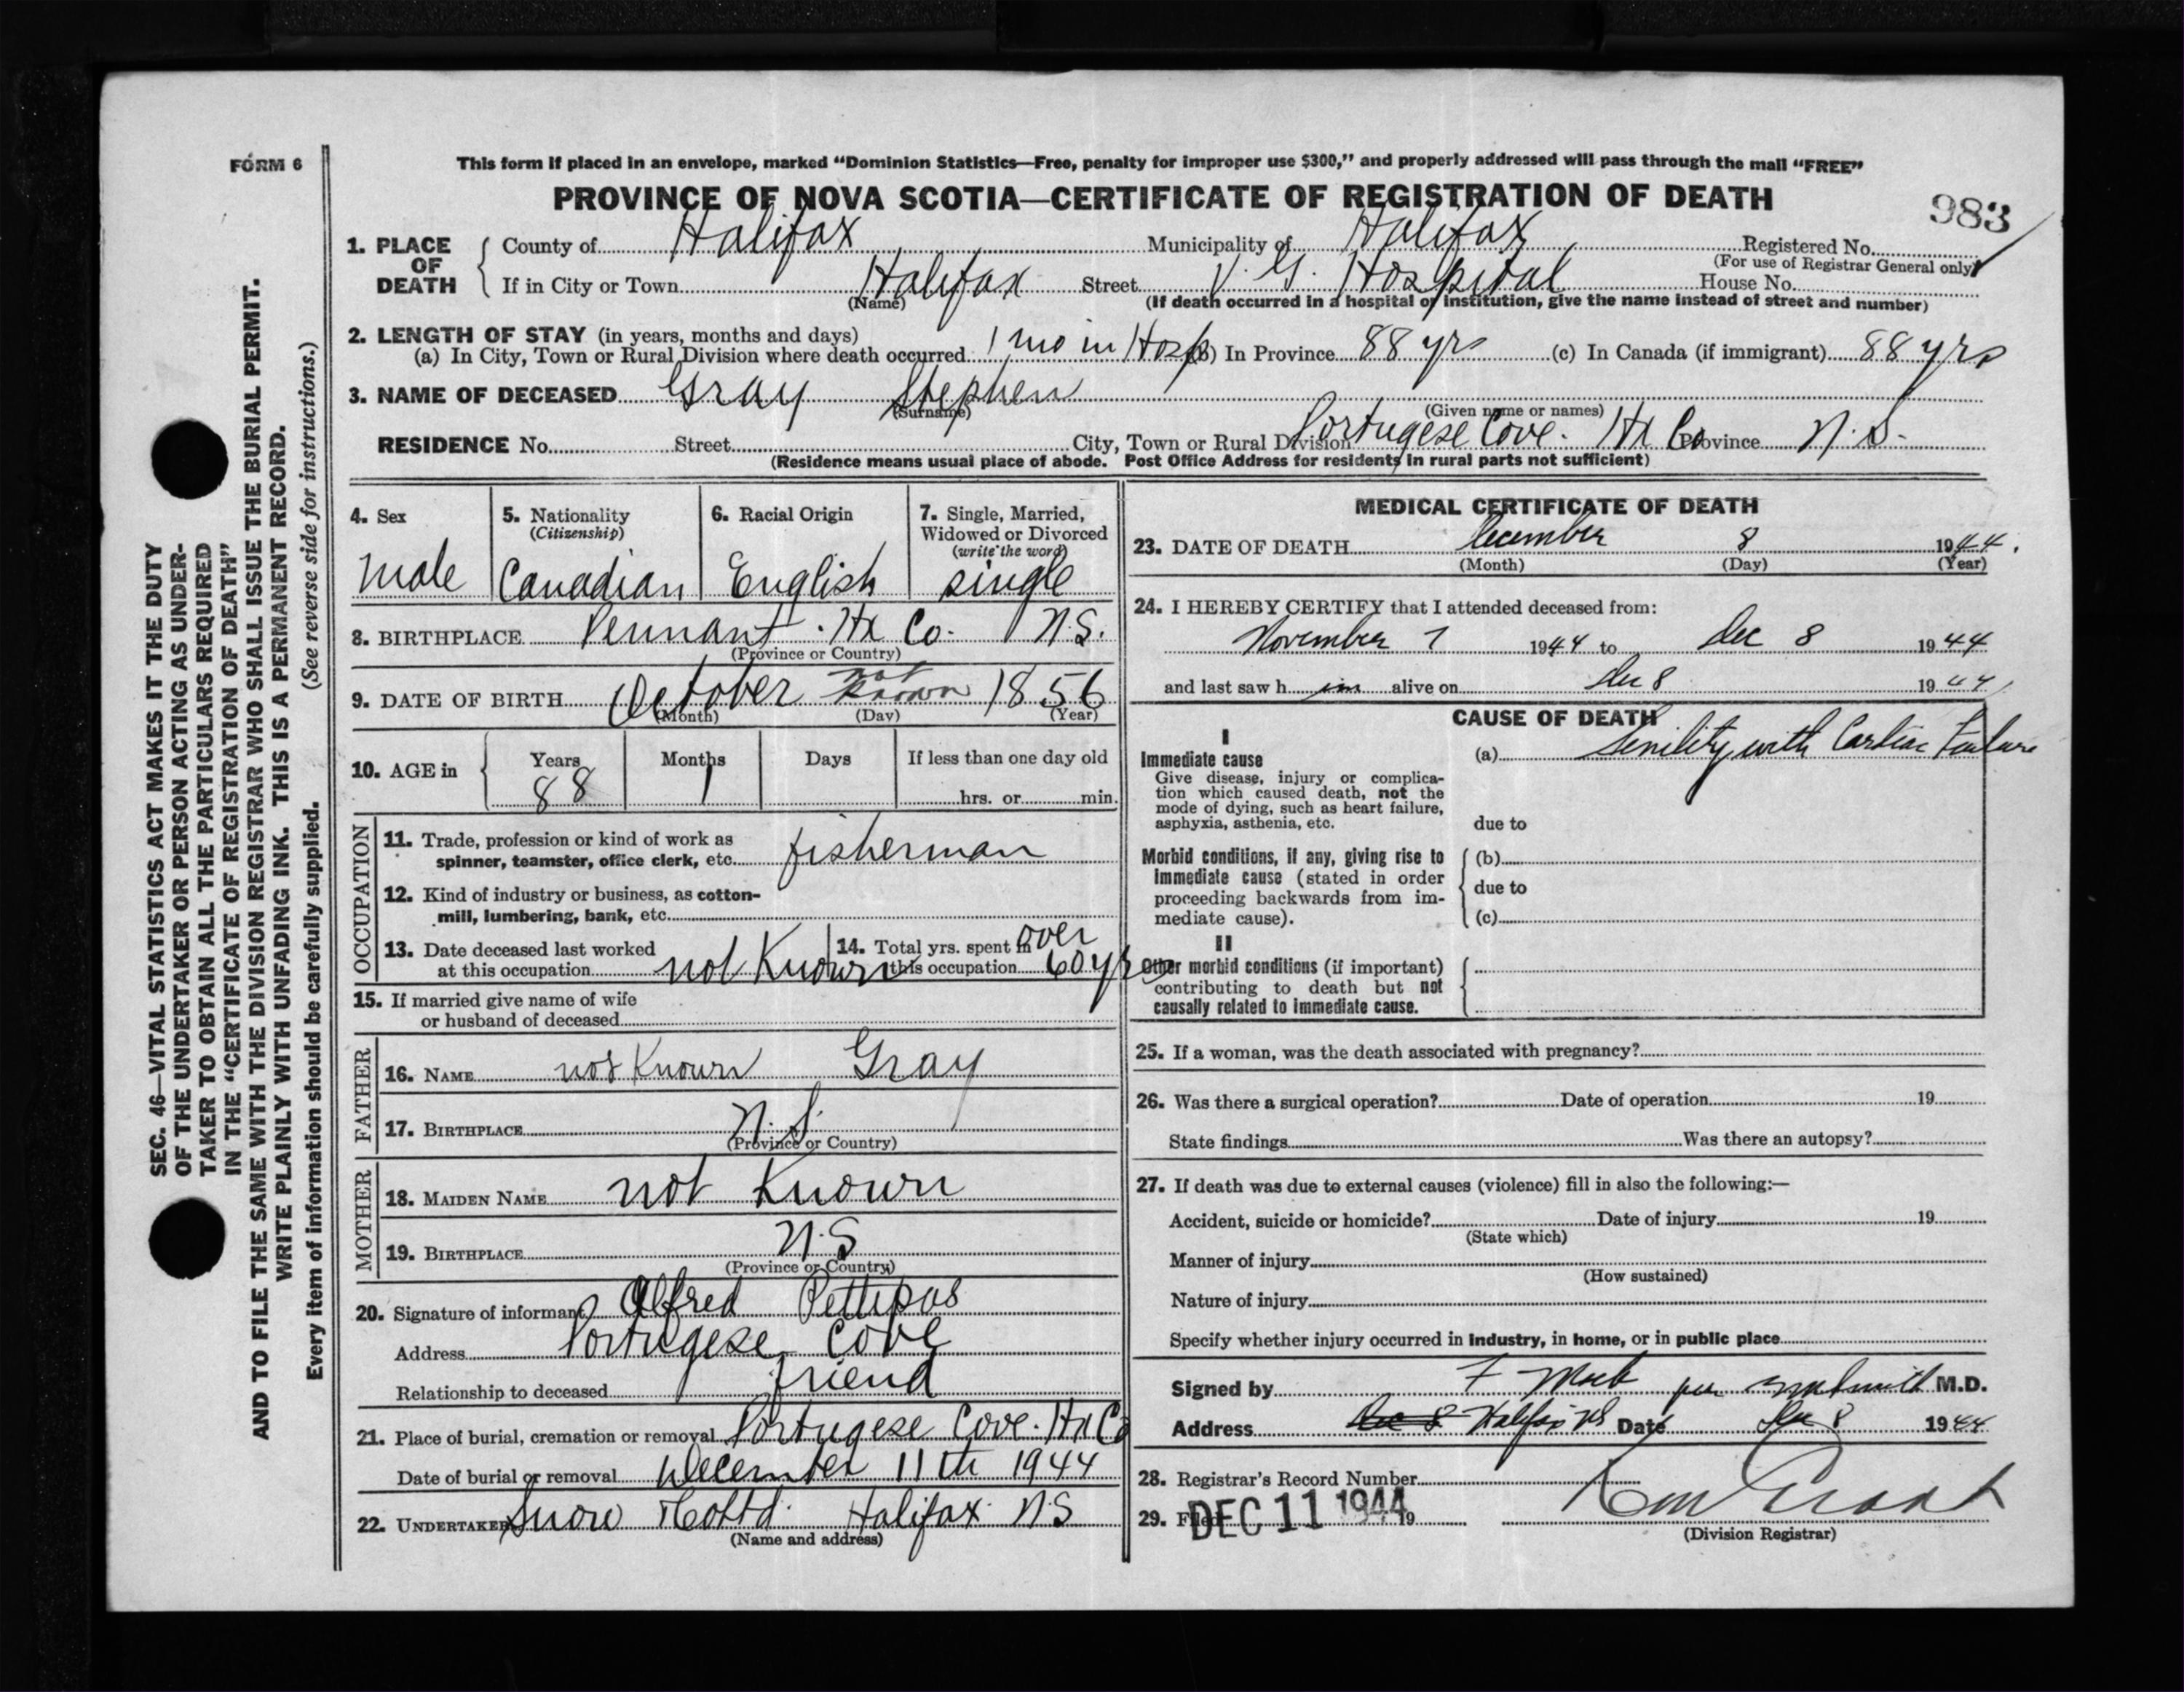 FORM 6
This form if placed in an envelope, marked "Dominion Statistics—Free, penalty for improper use $300," and properly addressed will pass through the mail "FREE"
PROVINCE OF NOVA SCOTIA—CERTIFICATE OF REGISTRATION OF DEATH
983
1. PLACE OF DEATH
County of Halifax Municipality of Halifax Registered No.
(For use of Registrar General only)
If in City or Town Halifax Street V. G. Hospital House No.
(Name) (If death occurred in a hospital or institution, give the name instead of street and number)
2. LENGTH OF STAY (in years, months and days)
(a) In City, Town or Rural Division where death occurred 1 mo in Hosp (b) In Province 88 yrs (c) In Canada (if immigrant) 88 yrs
3. NAME OF DECEASED Gray Stephen
(Surname) (Given name or names)
RESIDENCE No. Street City, Town or Rural Division Portugese Cove. Hx Co Province N.S.
(Residence means usual place of abode. Post Office Address for residents in rural parts not sufficient)
4. Sex
male
5. Nationality
(Citizenship)
Canadian
6. Racial Origin
English
7. Single, Married,
Widowed or Divorced
(write the word)
single
8. BIRTHPLACE Pennant. Hx Co. N.S.
(Province or Country)
9. DATE OF BIRTH October not known 1856
(Month) (Day) (Year)
10. AGE in
Years Months Days If less than one day old
88 1 hrs. or min.
OCCUPATION
11. Trade, profession or kind of work as
spinner, teamster, office clerk, etc. fisherman
12. Kind of industry or business, as cotton-
mill, lumbering, bank, etc.
13. Date deceased last worked
at this occupation not Known
14. Total yrs. spent in
this occupation over 60 yrs
15. If married give name of wife
or husband of deceased
FATHER
16. NAME not Known Gray
17. BIRTHPLACE N.S.
(Province or Country)
MOTHER
18. MAIDEN NAME not Known
19. BIRTHPLACE N.S
(Province or Country)
20. Signature of informant Alfred Pettipas
Address Portugese Cove
Relationship to deceased friend
21. Place of burial, cremation or removal Portugese Cove. Hx Co
Date of burial or removal December 11th 1944
22. UNDERTAKER Snow & Co Ltd. Halifax N.S
(Name and address)
MEDICAL CERTIFICATE OF DEATH
23. DATE OF DEATH December 8 1944.
(Month) (Day) (Year)
24. I HEREBY CERTIFY that I attended deceased from:
November 7 1944 to Dec 8 1944
and last saw h im alive on Dec 8 1944
CAUSE OF DEATH
I
Immediate cause
Give disease, injury or complica-
tion which caused death, not the
mode of dying, such as heart failure,
asphyxia, asthenia, etc.
(a) Senility with Cardiac Failure
due to
Morbid conditions, if any, giving rise to
immediate cause (stated in order
proceeding backwards from im-
mediate cause).
(b)
due to
(c)
II
Other morbid conditions (if important)
contributing to death but not
causally related to immediate cause.
25. If a woman, was the death associated with pregnancy?
26. Was there a surgical operation? Date of operation 19
State findings Was there an autopsy?
27. If death was due to external causes (violence) fill in also the following:—
Accident, suicide or homicide? Date of injury 19
(State which)
Manner of injury
(How sustained)
Nature of injury
Specify whether injury occurred in industry, in home, or in public place
Signed by F Mack per M.D.
Address Dec 8 Halifax NS Date Dec 8 1944
28. Registrar's Record Number
29. Filed DEC 11 1944 19
(Division Registrar)
SEC. 46—VITAL STATISTICS ACT MAKES IT THE DUTY
OF THE UNDERTAKER OR PERSON ACTING AS UNDER-
TAKER TO OBTAIN ALL THE PARTICULARS REQUIRED
IN THE "CERTIFICATE OF REGISTRATION OF DEATH"
AND TO FILE THE SAME WITH THE DIVISION REGISTRAR WHO SHALL ISSUE THE BURIAL PERMIT.
WRITE PLAINLY WITH UNFADING INK. THIS IS A PERMANENT RECORD.
Every item of information should be carefully supplied. (See reverse side for instructions.)